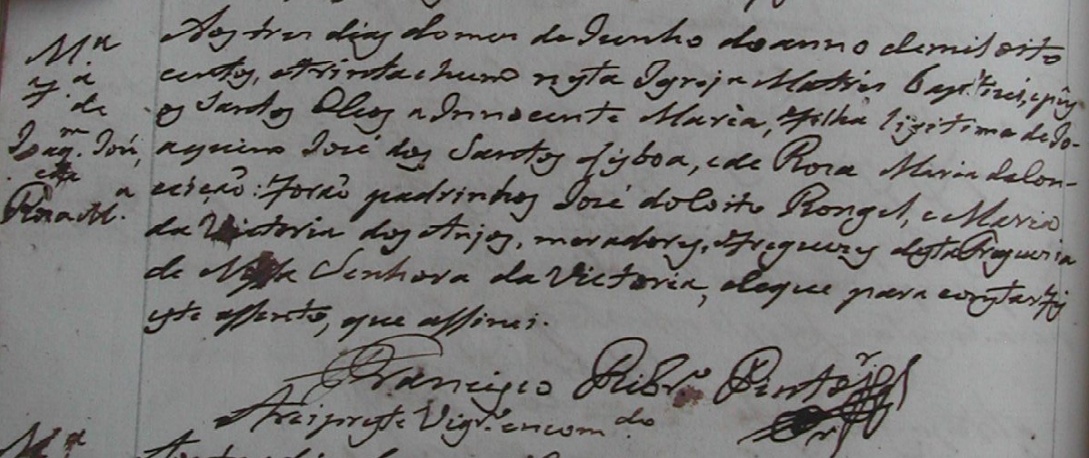 M.ª
f.ª
de
Joaq.m José,
e
Roza M.ª
Aos tres dias do mes de Junho do anno de mil oito
centos, e trinta e hum nesta Igreja Matris Baptizei, e puz
os Santos Oleos a Innocente Maria, filha ligitima de Jo-
aquim José dos Santos Lisboa, e de Roza Maria da Con-
ceição: Forão padrinhos José do Coito Rongel, e Maria
da Victoria dos Anjos, moradores, e Freguezes desta Freguezia
de Nossa Senhora da Victoria, de que para constar fiz
este assento, que assinei.
Francisco Ribr.º Pinto
Arciprete Vigr.º encom.do
M.ª